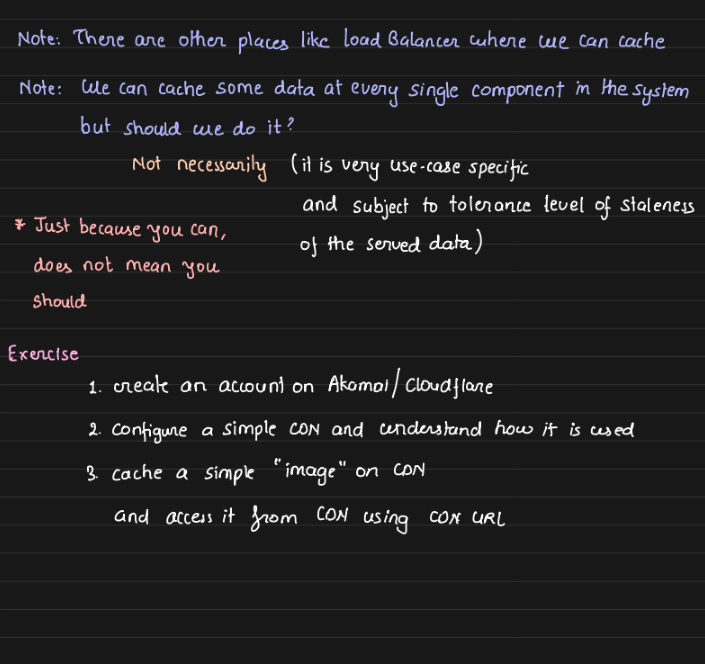 Note: There are other places like Load Balancer where we can cache
Note: We can cache some data at every single component in the system
but should we do it?
Not necessarily (it is very use-case specific
and subject to tolerance level of staleness
of the served data)
* Just because you can,
does not mean you
should
Exercise
1. create an account on Akamai/Cloudflare
2. Configure a simple CDN and understand how it is used
3. cache a simple "image" on CDN
and access it from CDN using CDN URL